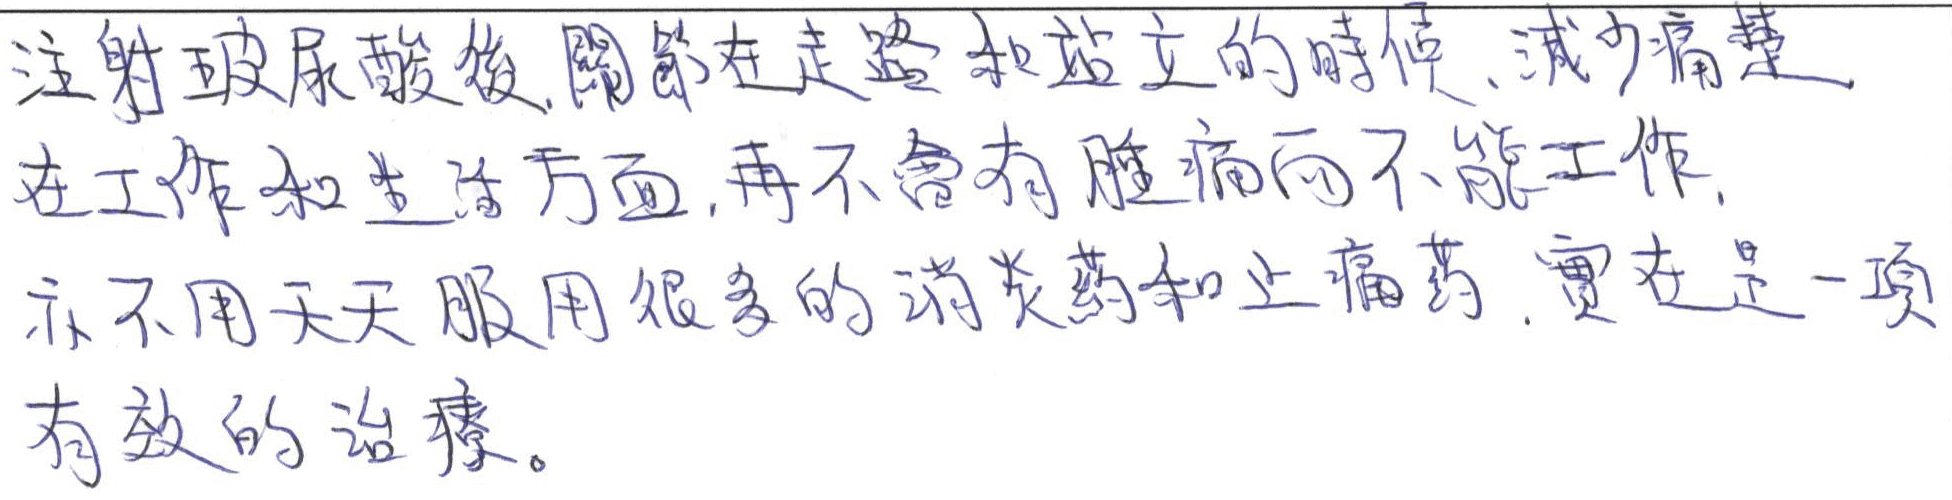 注射玻尿酸後,關節在走路和站立的時候、減少痛楚,
在工作和生活方面,再不會有腫痛而不能工作,
亦不用天天服用很多的消炎葯和止痛葯,實在是一項
有效的治療。